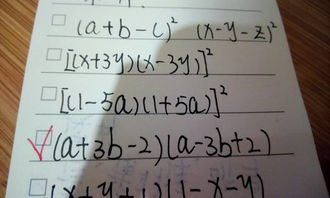 (a+b-c)² (x-y-z)²
[(x+3y)(x-3y)]²
[(1-5a)(1+5a)]²
(a+3b-2)(a-3b+2)
(x+y+1)(1-x-y)